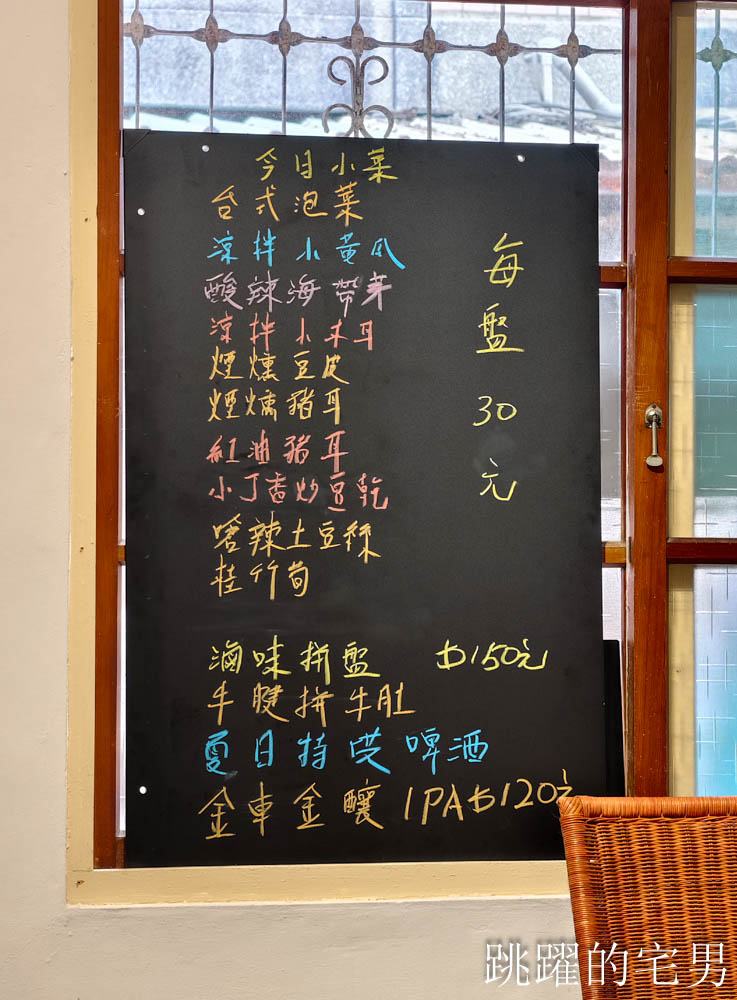 今日小菜
台式泡菜
涼拌小黃瓜
酸辣海帶芽
涼拌小木耳
煙燻豆皮
煙燻豬耳
紅油豬耳
小丁香炒豆乾
嗆辣土豆絲
桂竹筍
每盤30元
滷味拼盤 $150元
牛腱拼牛肚
夏日特選啤酒
金車金釀IPA$120元
跳躍的宅男